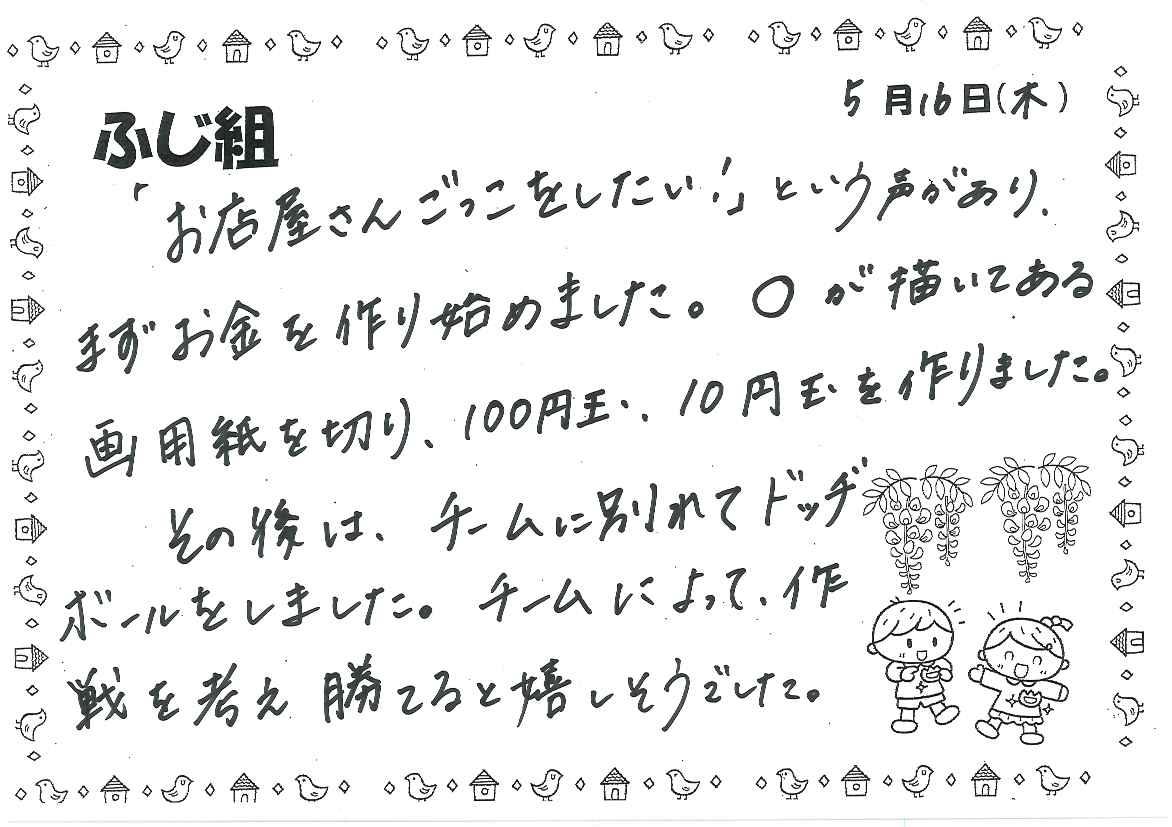 5月16日(木)
ふじ組
「お店屋さんごっこをしたい!」という声があり、
まずお金を作り始めました。〇が描いてある
画用紙を切り、100円玉、10円玉を作りました。
その後は、チームに別れてドッヂ
ボールをしました。チームによって、作
戦を考え勝てると嬉しそうでした。